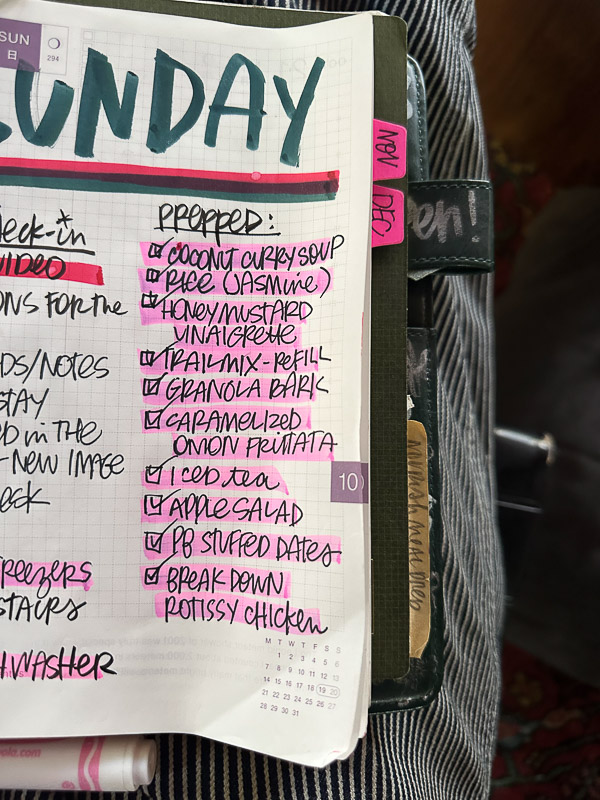 SUN
日
294
SUNDAY
NOV
DEC
CHECK-in*
VIDEO
FOR THE
/NOTES
STAY
in THE
- NEW IMAGE
FREEZERS
STAIRS
WASHER
PREPPED:
COCONUT CURRY SOUP
RICE (JASMINE)
HONEY/MUSTARD
VINAIGRETTE
TRAIL MIX - REFILL
GRANOLA BARK
CARAMELIZED
ONION FRITTATA
ICED TEA
APPLE SALAD
PB STUFFED DATES
BREAK DOWN
ROTISSY CHICKEN
10
M T W T F S S
1 2 3 4 5 6
7 8 9 10 11 12 13
14 15 16 17 18 19 20
21 22 23 24 25 26 27
28 29 30 31
en!
ola.com